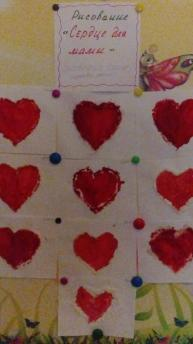 Рисование
"Сердце для
мамы"